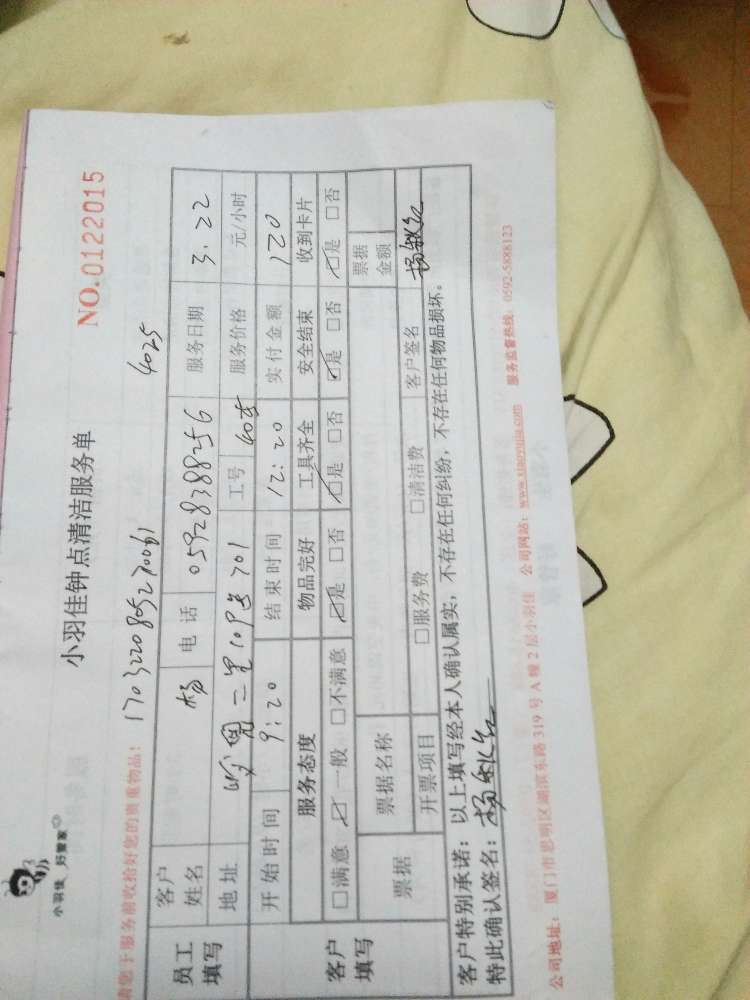 小羽佳 好管家
小羽佳钟点清洁服务单
NO.0122015
请您于服务前收拾好您的贵重物品!
4025
员工填写
客户姓名 杨 电话 05928388256 服务日期 3.22
地址 二里 701 工号 服务价格 元/小时
客户填写
开始时间 9:20 结束时间 12:20 实付金额 120
服务态度 物品完好 工具齐全 安全结束 收到卡片
□满意 ☑一般 □不满意 ☑是 □否 ☑是 □否 ☑是 □否 ☑是 □否
票据 票据名称 票据金额
开票项目 □服务费 □清洁费 客户签名
客户特别承诺:以上填写经本人确认属实,不存在任何纠纷,不存在任何物品损坏。
特此确认签名:
公司地址:厦门市思明区湖滨东路319号A幢2层小羽佳 公司网站:www.xiaoyujia.com 服务监督热线:0592-5888123